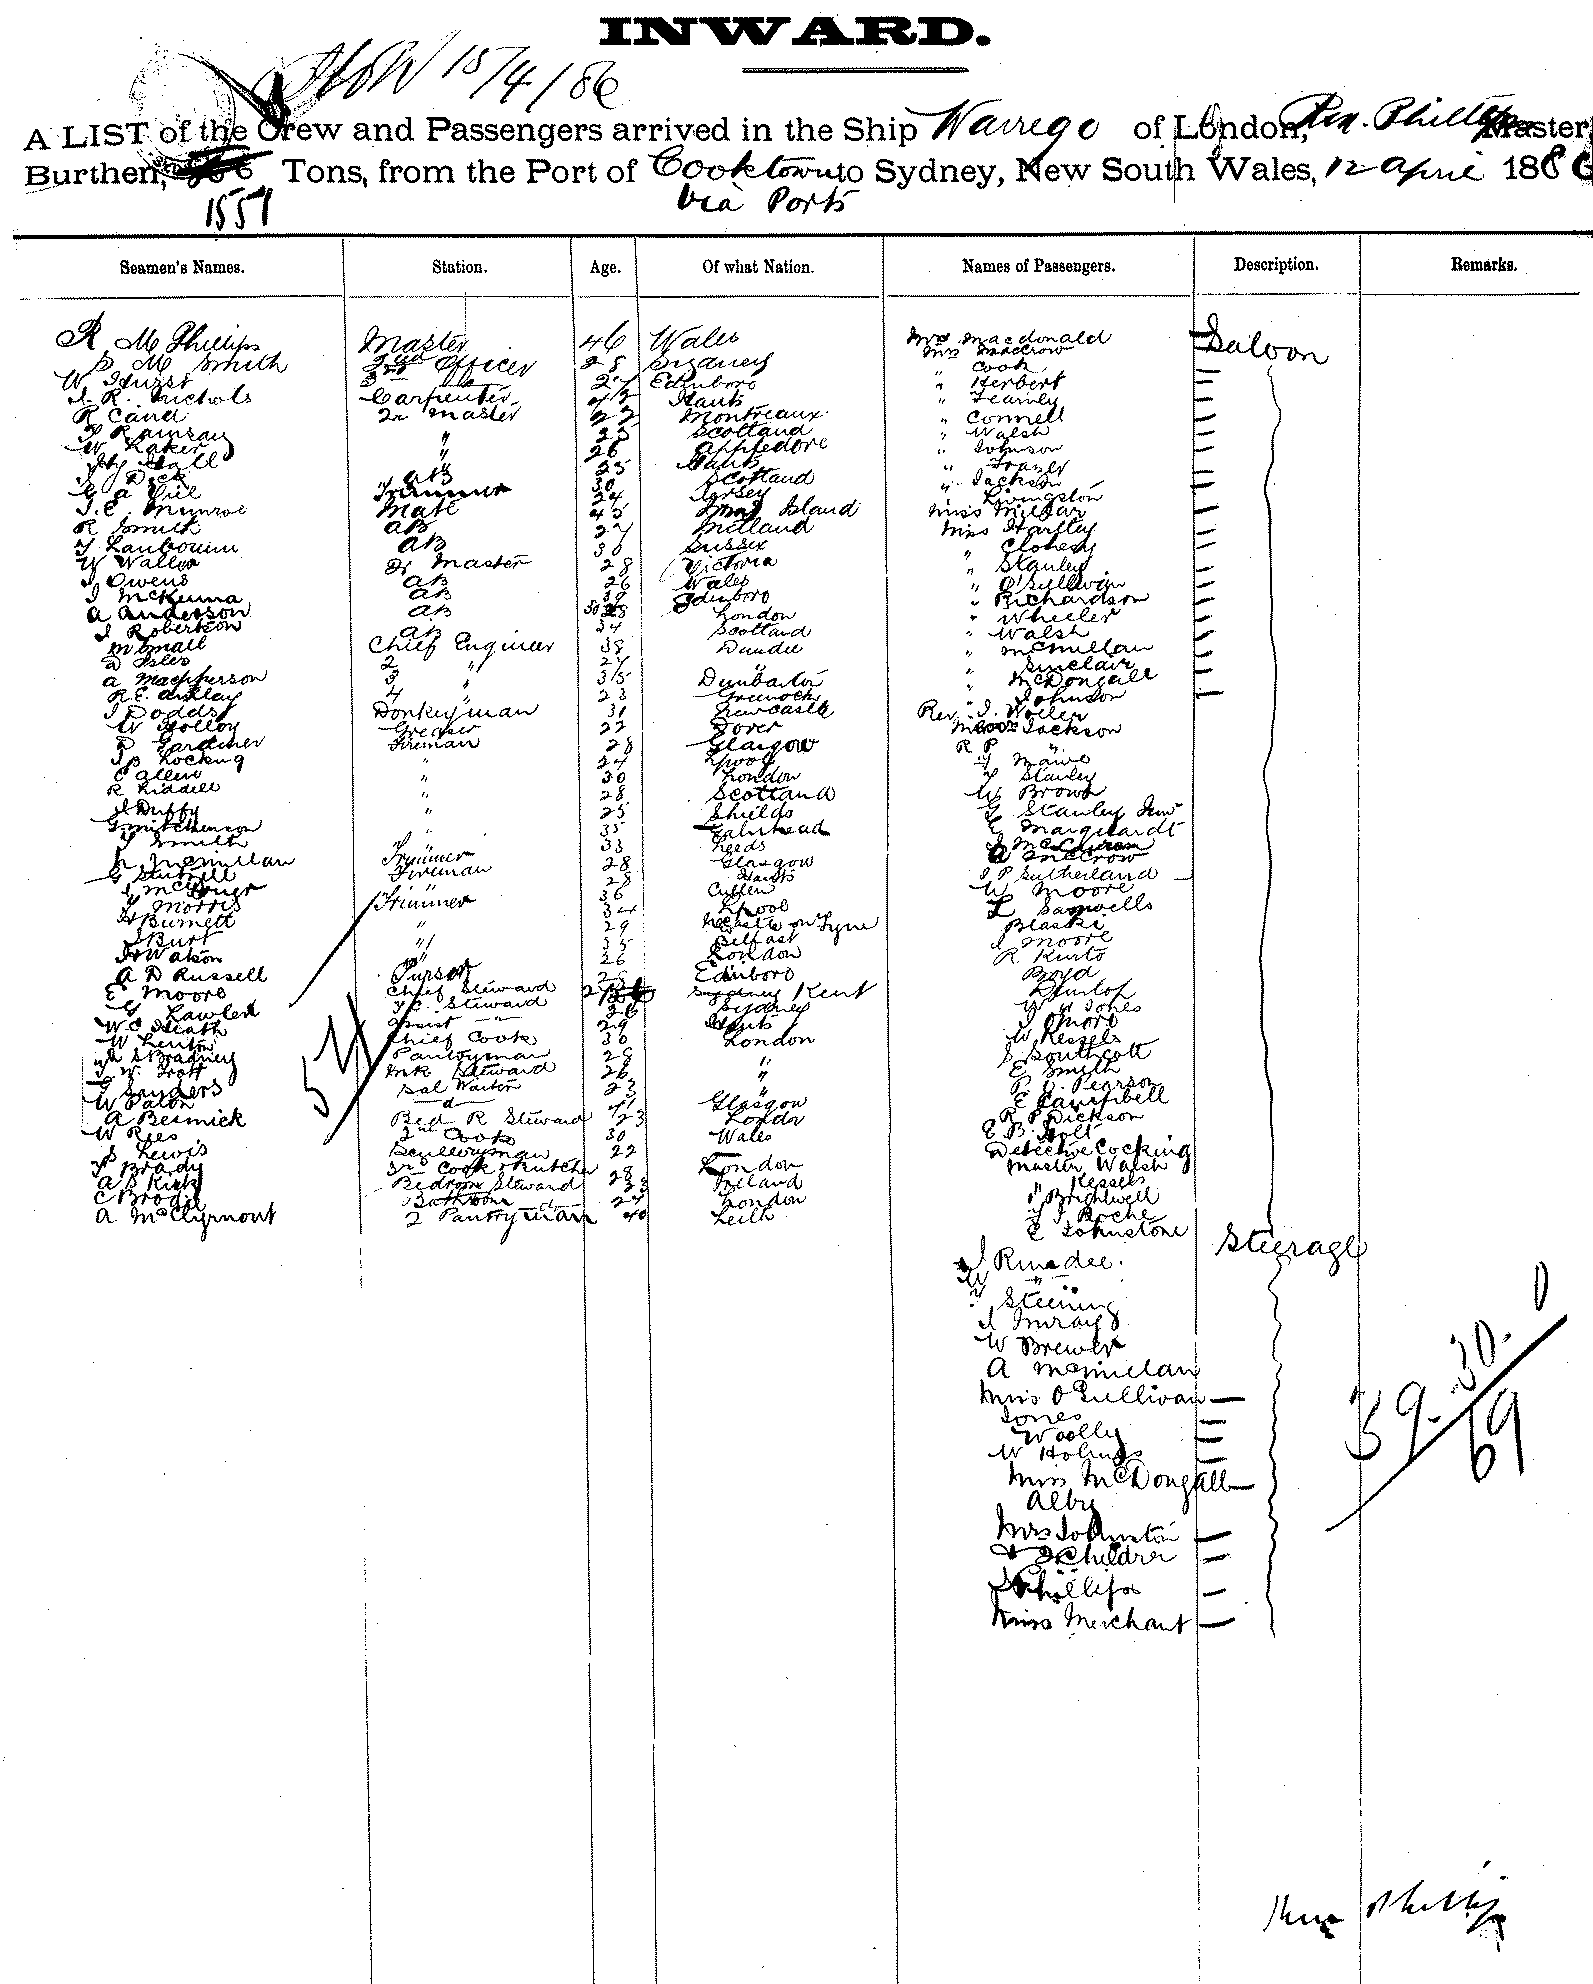 INWARD.
15/4/86
A LIST of the Crew and Passengers arrived in the Ship Warrego of London, Rm. Phillips Master,
Burthen, Tons, from the Port of Cooktown to Sydney, New South Wales, 12 April 1886
1559 Via Ports
Seamen's Names. Station. Age. Of what Nation. Names of Passengers. Description. Remarks.
R M Phillips Master 46 Wales Mrs Macdonald Saloon
S M Smith 2nd Officer 28 Sydney Mrs MacCrow
W Hurst 3rd " 27 Edinboro " Cook
J. R. Nichols Carpenter 43 Hants " Herbert
R Cand 2r Master 22 Montreaux " Fearnly
Ramsay " Scotland " Connell
W Laker " 26 Appledore " Walsh
Hall " 25 Hants " Johnson
Dick AB 30 Scotland " Frazer
G A Viel Trimmer 24 Jersey " Jackson
J. C. Munroe Mate 43 Island Livingston
R Smith AB 27 Midland Miss Millar
AB 36 Sussex Miss Hartley
W Waller Qr Master 28 Victoria " Clohesy
J Owens AB 26 Wales " Stanley
J McKenna AB 39 Edinboro " O'Sullivan
A Anderson AB 28 London " Richardson
J Robertson AB 34 Scotland " Wheeler
W Small Chief Engineer 38 Dundee " Walsh
D Isles 2 " 27 " " McMillan
A Macpherson 3 35 Dunbarton " Sinclair
R. E. Ankley 4 " 23 Greenock " McDongall
J Dodds Donkeyman 31 Newcastle Johnson
W Holloy Greaser 22 Dover Rev. J. Woller
D Gardiner Fireman 28 Glasgow Jackson
J B Locking " 24 Lpool R P "
C Allen " 30 London Mawe
R Liddell " 28 Scotland Stanley
J Duffy " 25 Shields W Brown
G Mitchenson " 35 G Stanley Junr
Smith " 33 Leeds Marquardt
McMillan Trimmer 28 Glasgow A McCrow
Fireman 28 Hants J P Sutherland
" 36 Cullen W Moore
Morris Trimmer 34 Lpool L Samwells
Burnett " 29 NCastle on Tyne Blaski
J Burt " 35 Belfast J Moore
Watson " 26 London R Kurto
A D Russell Purser 28 Edinboro Boyd
E Moore Chief Steward Kent Dunlop
Lawler F.C. Steward 26 Sydney W H Jones
W C Heath Assist " 29 Hants J Moro
W Lenton Chief Cook 36 London W Kessels
S Bradney Pantryman 28 " S Southcott
J W Trott Steward 26 " E Smyth
Snyders Sal Waiter 23 " P. C. Pearson
W Paton d Glasgow E Campbell
A Besnick Bed R Steward 23 London R P Dickson
W Rees 2nd Cook 30 Wales E B Holt
S Lewis Sculleryman 22 Detective Cocking
Brady 3rd Cook & Butcher 28 London Master Walsh
A B Kirk Bedroom Steward 23 Ireland " Kessels
C Brodie Bathroom d 24 London " Brightwell
A McClymont 2 Pantryman 40 Leith J Roche
E Johnstone
Steerage
J Rundee.
W "
Steening
J Imray
W Brewer
A McMillan
Miss O'Sullivan
Jones
Woolly
W Holmes
Miss McDongall
Alby
Mrs Johnston
& 2 Children
Phillips
Miss Merchant
54
39. 30. 0
69
Phillips